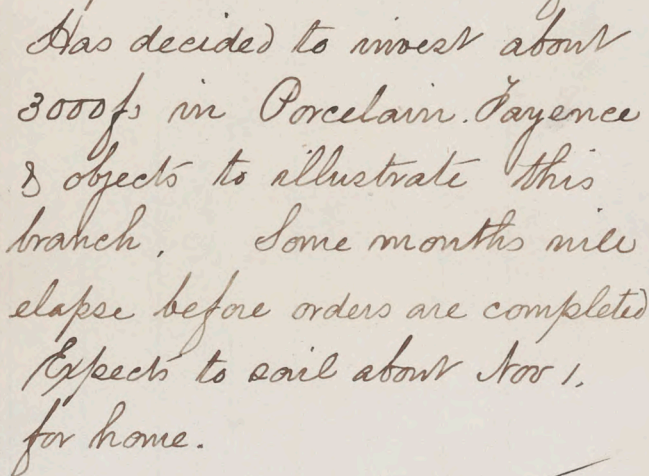 Has decided to invest about
3000fs in Porcelain. Fayence
& objects to illustrate this
branch. Some months will
elapse before orders are completed
Expects to sail about Nov 1.
for home.